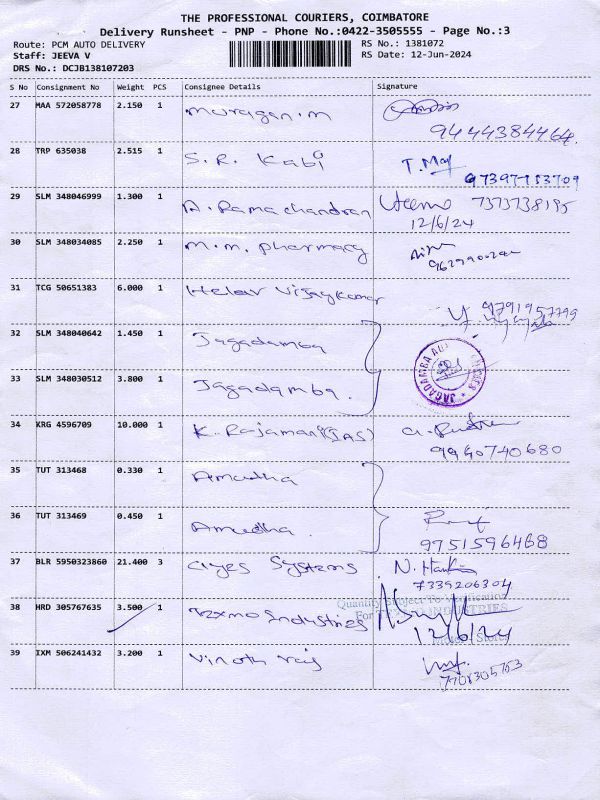 THE PROFESSIONAL COURIERS, COIMBATORE
Delivery Runsheet - PNP - Phone No.:0422-3505555 - Page No.:3
Route: PCM AUTO DELIVERY
RS No.: 1381072
Staff: JEEVA V
RS Date: 12-Jun-2024
DRS No.: DCJB138107203
S No Consignment No Weight PCS Consignee Details Signature
27 MAA 572058778 2.150 1 Murugan.m
9444384464
28 TRP 635038 2.515 1 S.R. Kabi
29 SLM 348046999 1.300 1 A. Ramachandran 7373738195
12/6/24
30 SLM 348034085 2.250 1 M.M. pharmacy
31 TCG 50651383 6.000 1 Helar Vijaykumar
9791957799
32 SLM 348040642 1.450 1 Jagadamba
33 SLM 348030512 3.800 1 Jagadamba.
JAGADAMBA
34 KRG 4596709 10.000 1 K. Rajamani (IAS)
9940740680
35 TUT 313468 0.330 1 Amudha
36 TUT 313469 0.450 1 Amudha.
9751596468
37 BLR 5950323860 21.400 3 Ayes Systems
7339206304
38 HRD 305767635 3.500 1 Texmo Industries
Quantity Subject To Verification
INDUSTRIES
12/6/24
Stores
39 IXM 506241432 3.200 1 Vinoth raj
7708305753